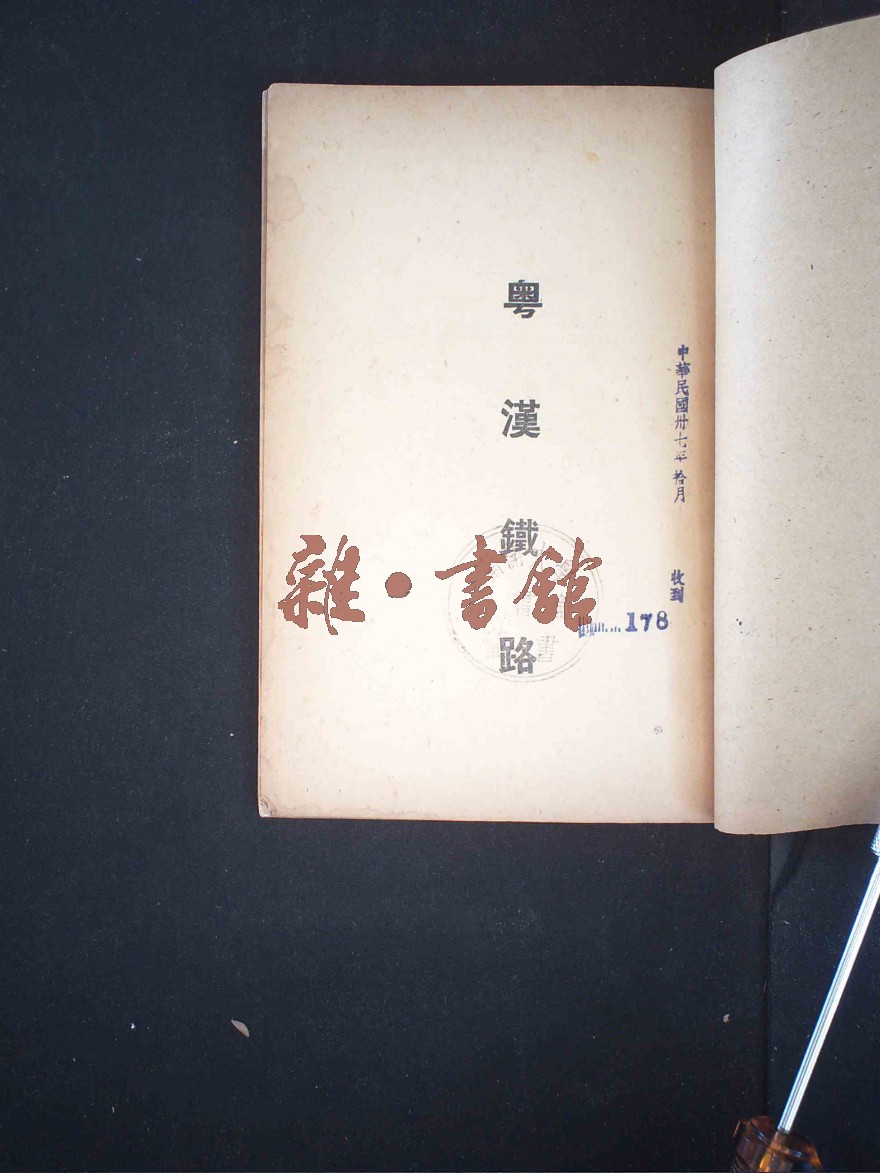 中華民國卅七年拾月 收到
178
粵漢鐵路
雜·書館